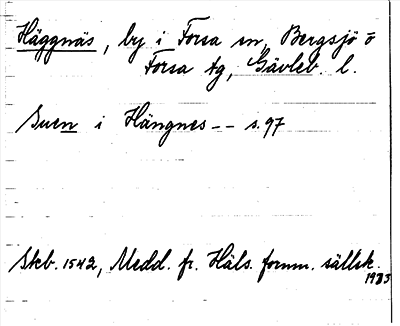 Häggnäs, by i Forsa sn, Bergsjö o
Forsa tg, Gävleb. l.
Suen i Hängnes -- s. 97
Skb. 1542, Medd. fr. Häls. fornm. sällsk.
1985